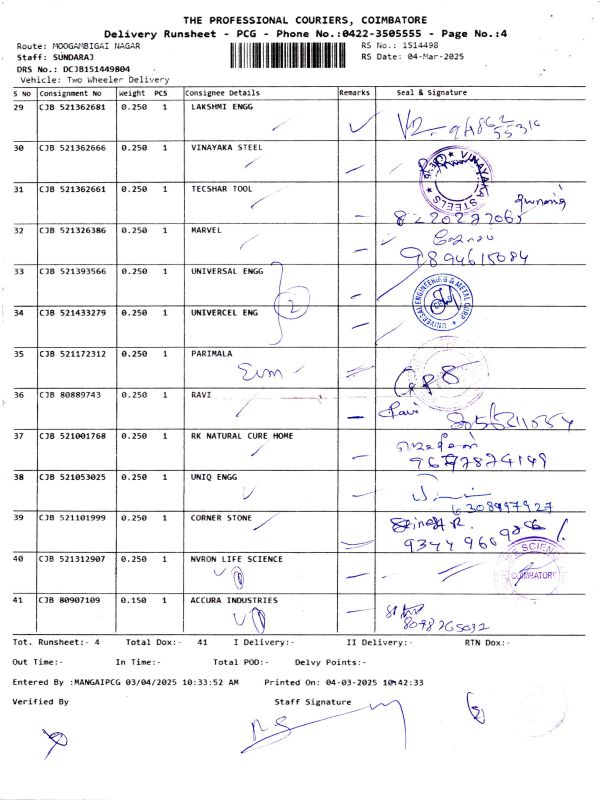 THE PROFESSIONAL COURIERS, COIMBATORE
Delivery Runsheet - PCG - Phone No.:0422-3505555 - Page No.:4
Route: MOOGAMBIGAI NAGAR RS No.: 1514498
Staff: SUNDARAJ RS Date: 04-Mar-2025
DRS No.: DCJB151449804
Vehicle: Two Wheeler Delivery
S No Consignment No Weight PCS Consignee Details Remarks Seal & Signature
29 CJB 521362681 0.250 1 LAKSHMI ENGG
30 CJB 521362666 0.250 1 VINAYAKA STEEL
VINAYAKA STEELS
31 CJB 521362661 0.250 1 TECSHAR TOOL
8220277065
32 CJB 521326386 0.250 1 MARVEL
9894615084
33 CJB 521393566 0.250 1 UNIVERSAL ENGG
2
UNIVERSAL ENGINEERING & METAL CORP
34 CJB 521433279 0.250 1 UNIVERCEL ENG
35 CJB 521172312 0.250 1 PARIMALA
36 CJB 80889743 0.250 1 RAVI
Ravi
37 CJB 521001768 0.250 1 RK NATURAL CURE HOME
38 CJB 521053025 0.250 1 UNIQ ENGG
6308997927
39 CJB 521101999 0.250 1 CORNER STONE
40 CJB 521312907 0.250 1 NVRON LIFE SCIENCE
COIMBATORE
41 CJB 80907109 0.150 1 ACCURA INDUSTRIES
8098265032
Tot. Runsheet:- 4 Total Dox:- 41 I Delivery:- II Delivery:- RTN Dox:-
Out Time:- In Time:- Total POD:- Delvy Points:-
Entered By :MANGAIPCG 03/04/2025 10:33:52 AM Printed On: 04-03-2025 10:42:33
Verified By Staff Signature